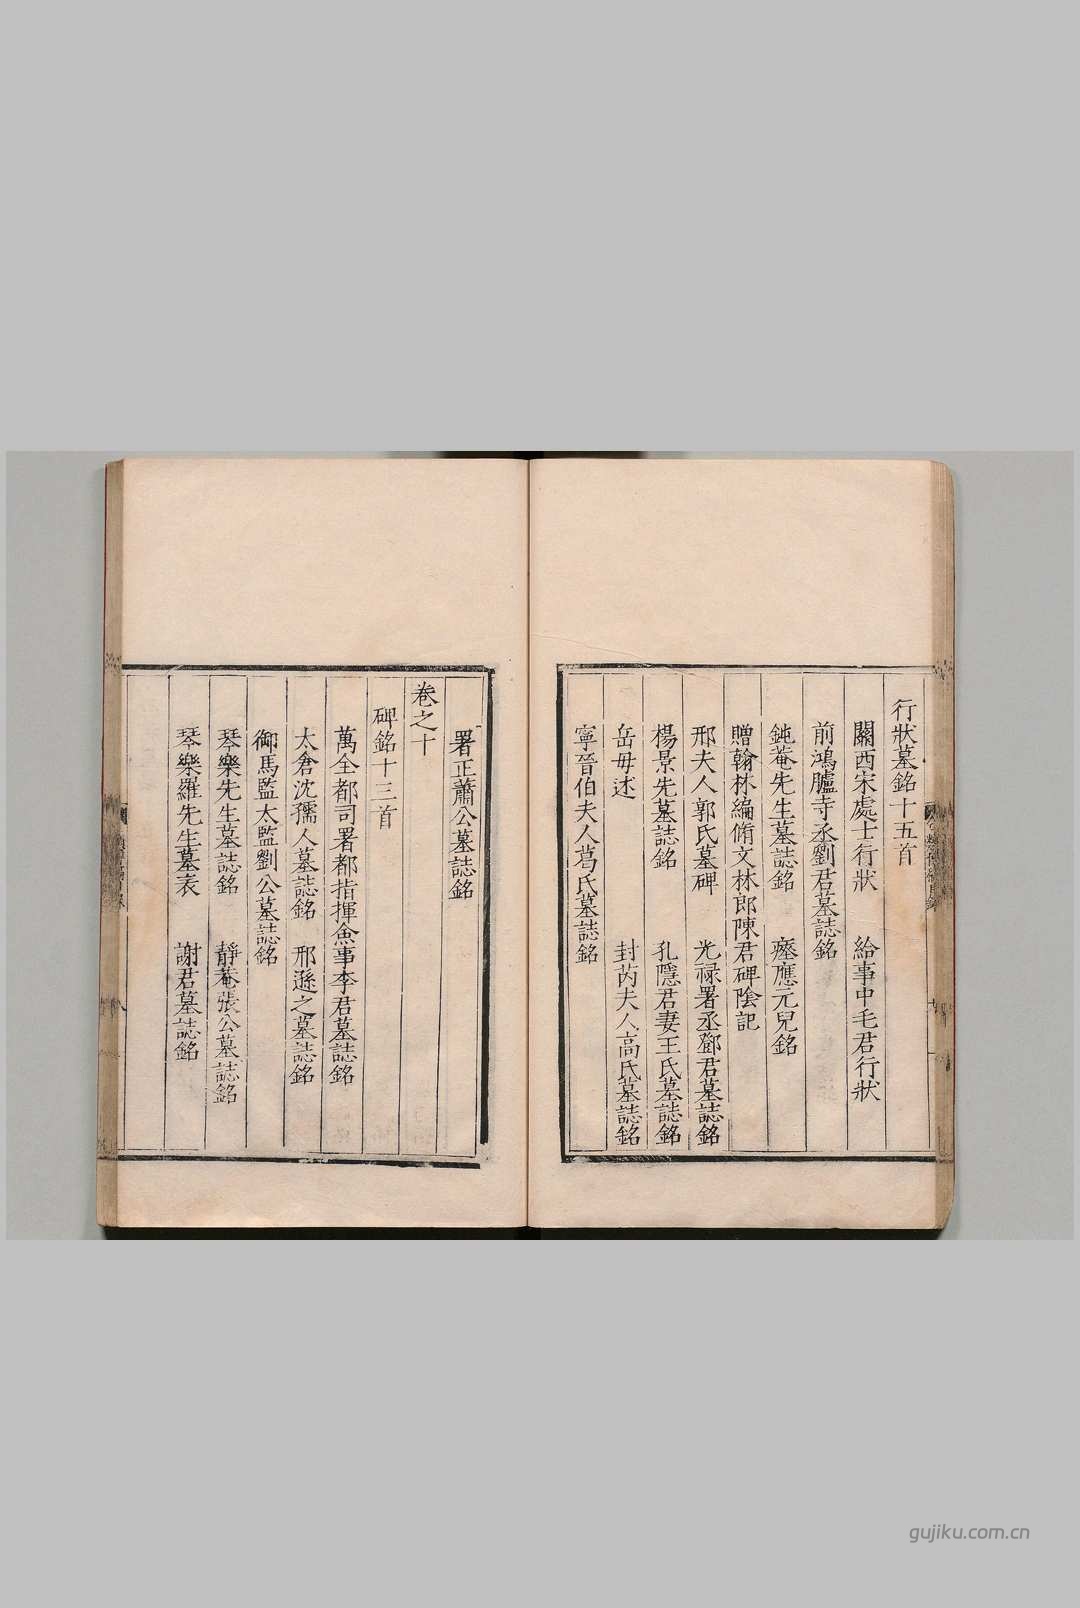 行狀墓銘十五首
關西宋處士行狀　給事中毛君行狀
前鴻臚寺丞劉君墓誌銘
鈍菴先生墓誌銘　瘞應元兒銘
贈翰林編脩文林郎陳君碑陰記
邢夫人郭氏墓碑　光禄署丞鄧君墓誌銘
楊景先墓誌銘　孔隱君妻王氏墓誌銘
岳毋述　封芮夫人高氏墓誌銘
寧晉伯夫人葛氏墓誌銘
署正蕭公墓誌銘
卷之十
碑銘十三首
萬全都司署都指揮僉事李君墓誌銘
太倉沈孺人墓誌銘　邢遜之墓誌銘
御馬監太監劉公墓誌銘
琴樂先生墓誌銘　靜菴張公墓誌銘
琴樂羅先生墓表　謝君墓誌銘
gujiku.com.cn